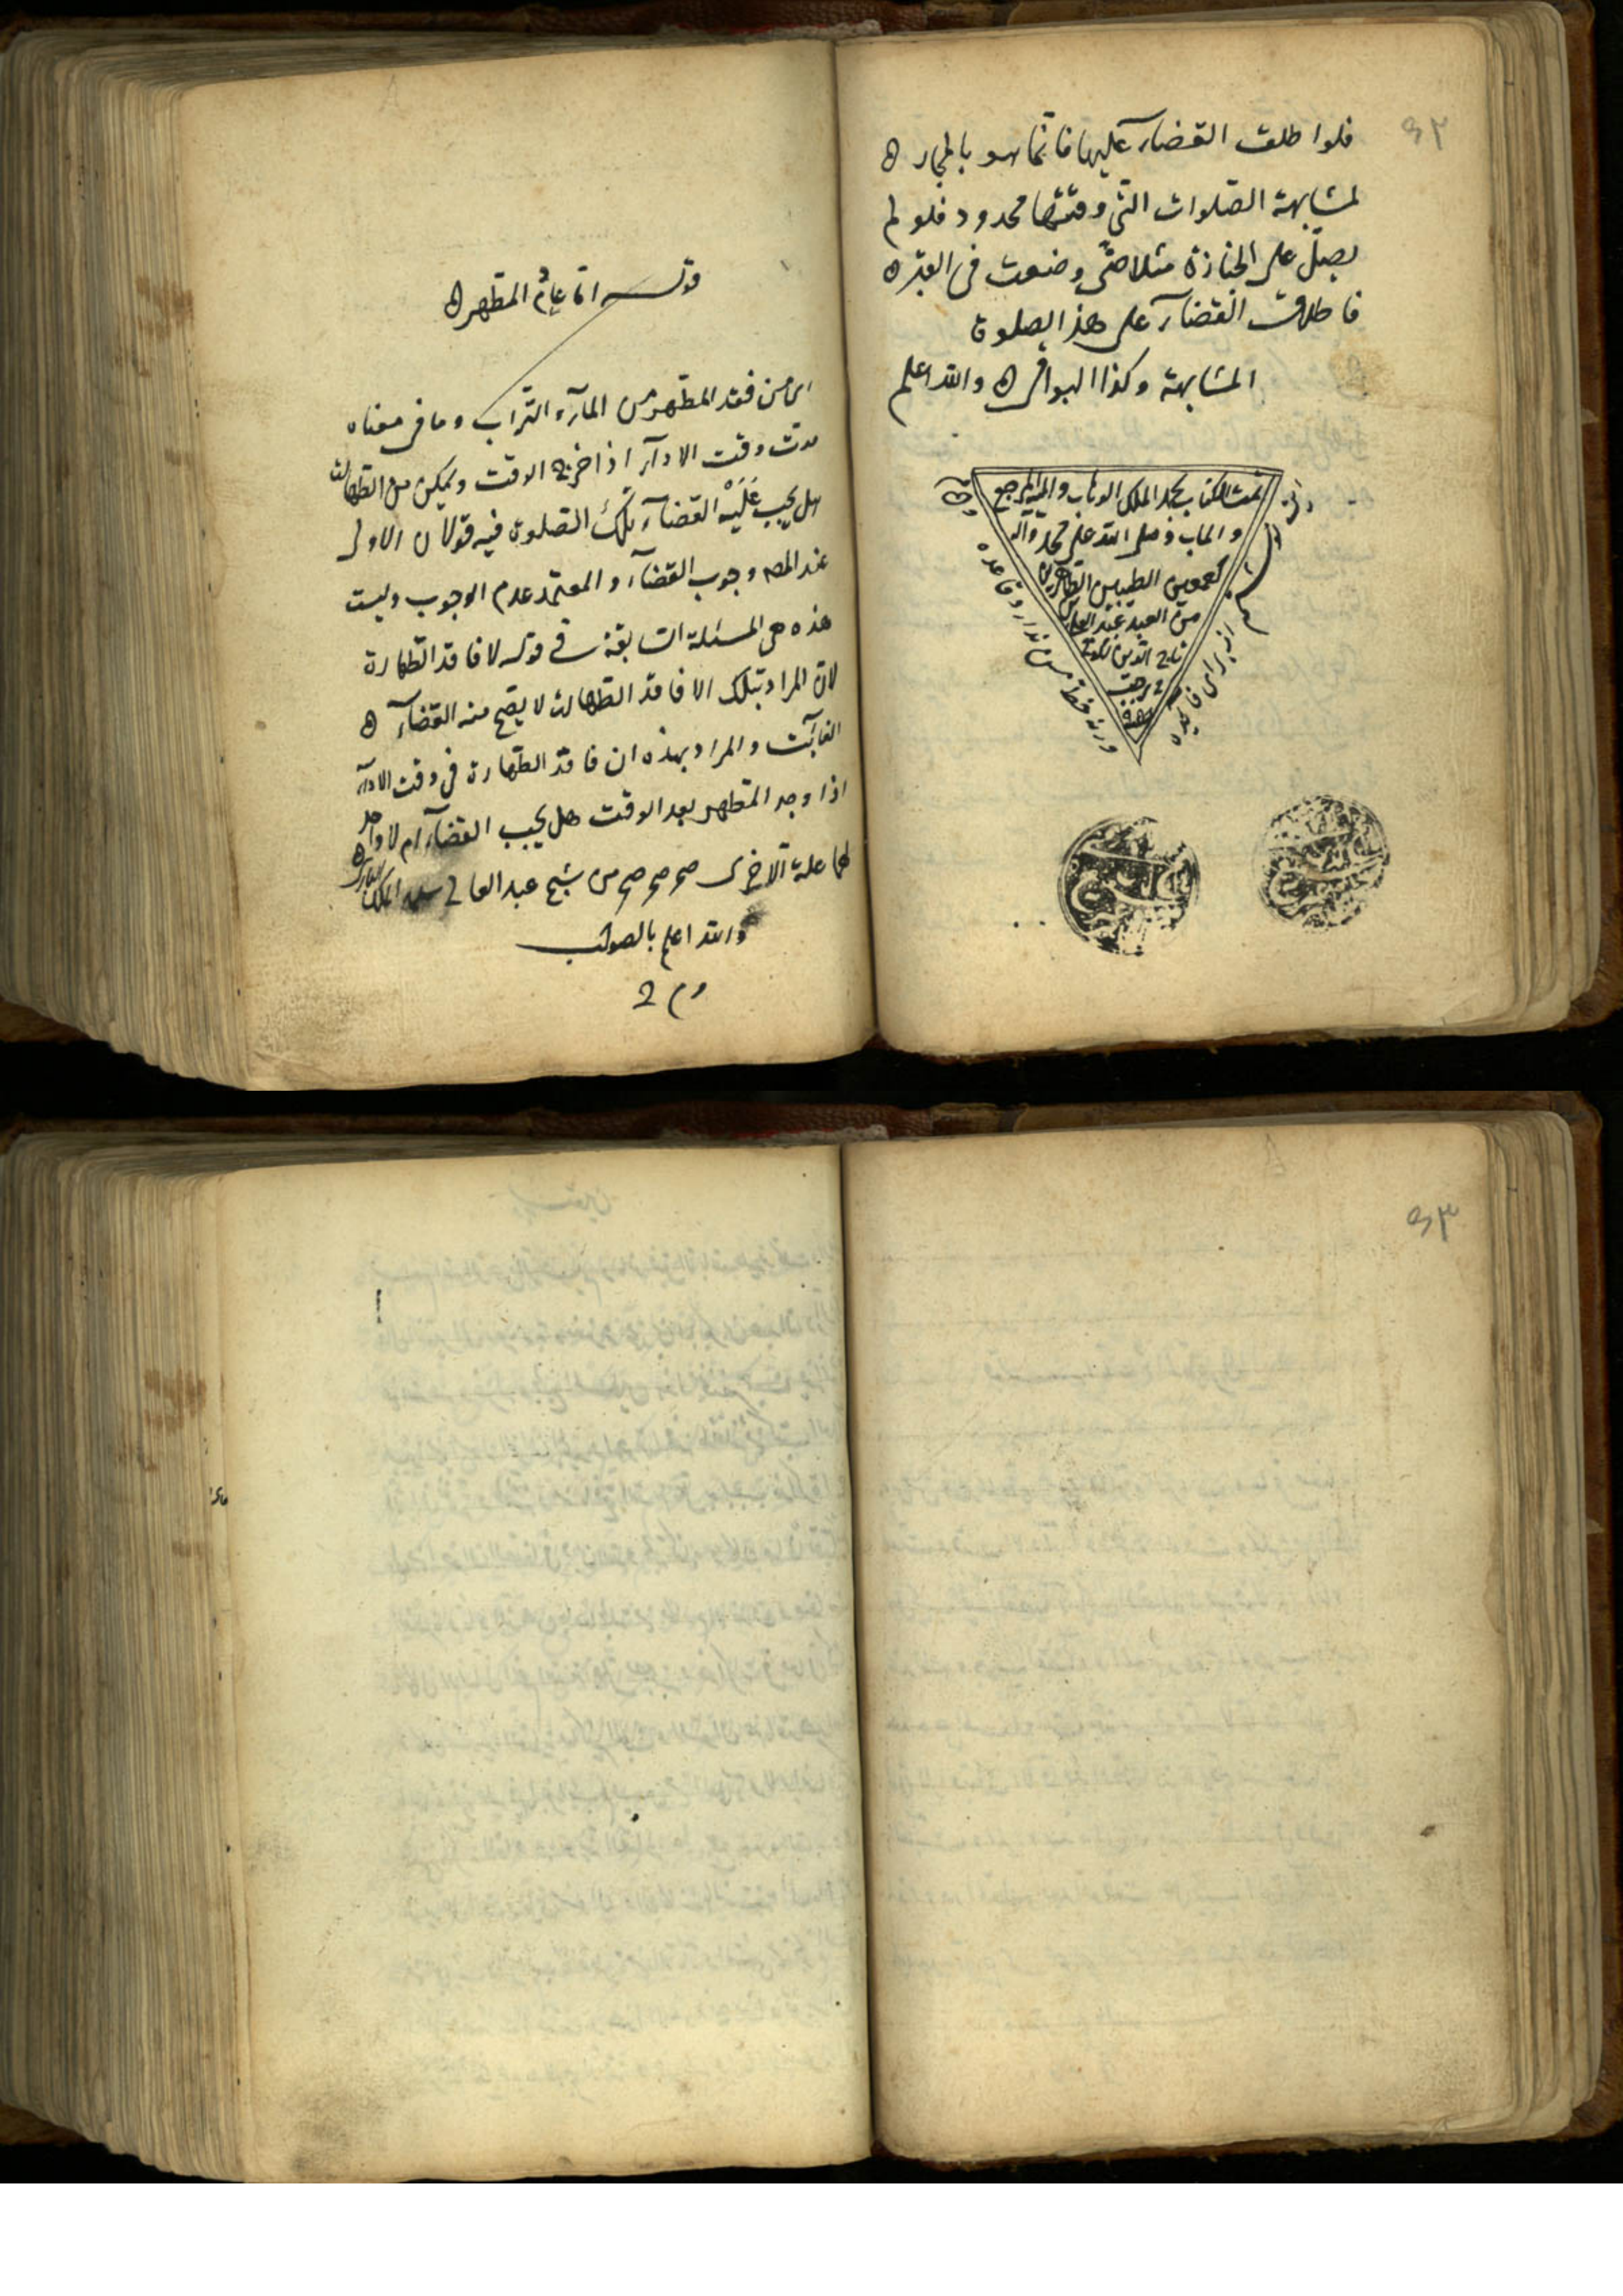 فلو اطلق القضاء عليها فانما هو بالمجاز ه
لمشابهة الصلوات التى وقتها محدود فلو لم
يصل على الجنازة مثلا حتى وضعت فى القبر ه
فاطلاق القضاء على هذ الصلوة
المشابهة وكذا البواقى ه والله اعلم
تمت الكتاب بحمد الملك الوهاب واليه المرجع
و الماب وصلى الله على محمد واله
اجمعين الطيبين الطاهرين
من العبد عبد
تاج الدين
رجب
ورنه خط من ندارد قاعده
از براى فاتحه
۹۲
قوله اما عادم المطهر ه
اى من فقد المطهر من الماء و التراب وما فى معناه
مدت وقت الاداء اذا خرج الوقت وتمكن من الطهارت
هل يجب عَلَيْه القضاء تلك الصلوة فيه قولان الاولى
عند المصـ وجوب القضاء و المعتمد عدم الوجوب وليست
هذه هى المسئلة السابقة فى قوله لا فاقد الطهارة
لان المراد بتلك الا فاقد الطهارت لا يصح منه القضاء ه
الفائت و المراد بهذه ان فاقد الطهارة فى وقت الاداء
اذا وجد المطهر بعد الوقت هل يجب القضاء ام لا واحد
لها علة الاخرى صح صح صح من شيخ عبد العالى سلمه الملك البارى ه
والله اعلم بالصواب
۹۳